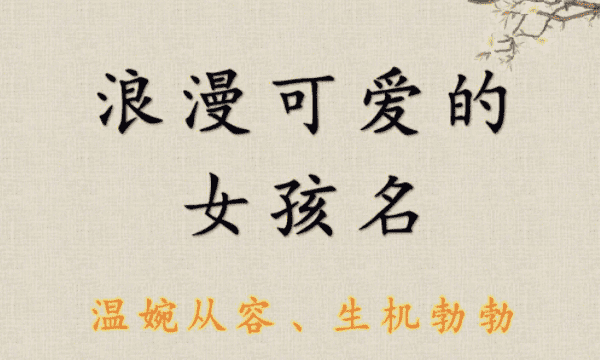 浪漫可爱的
女孩名
温婉从容、生机勃勃